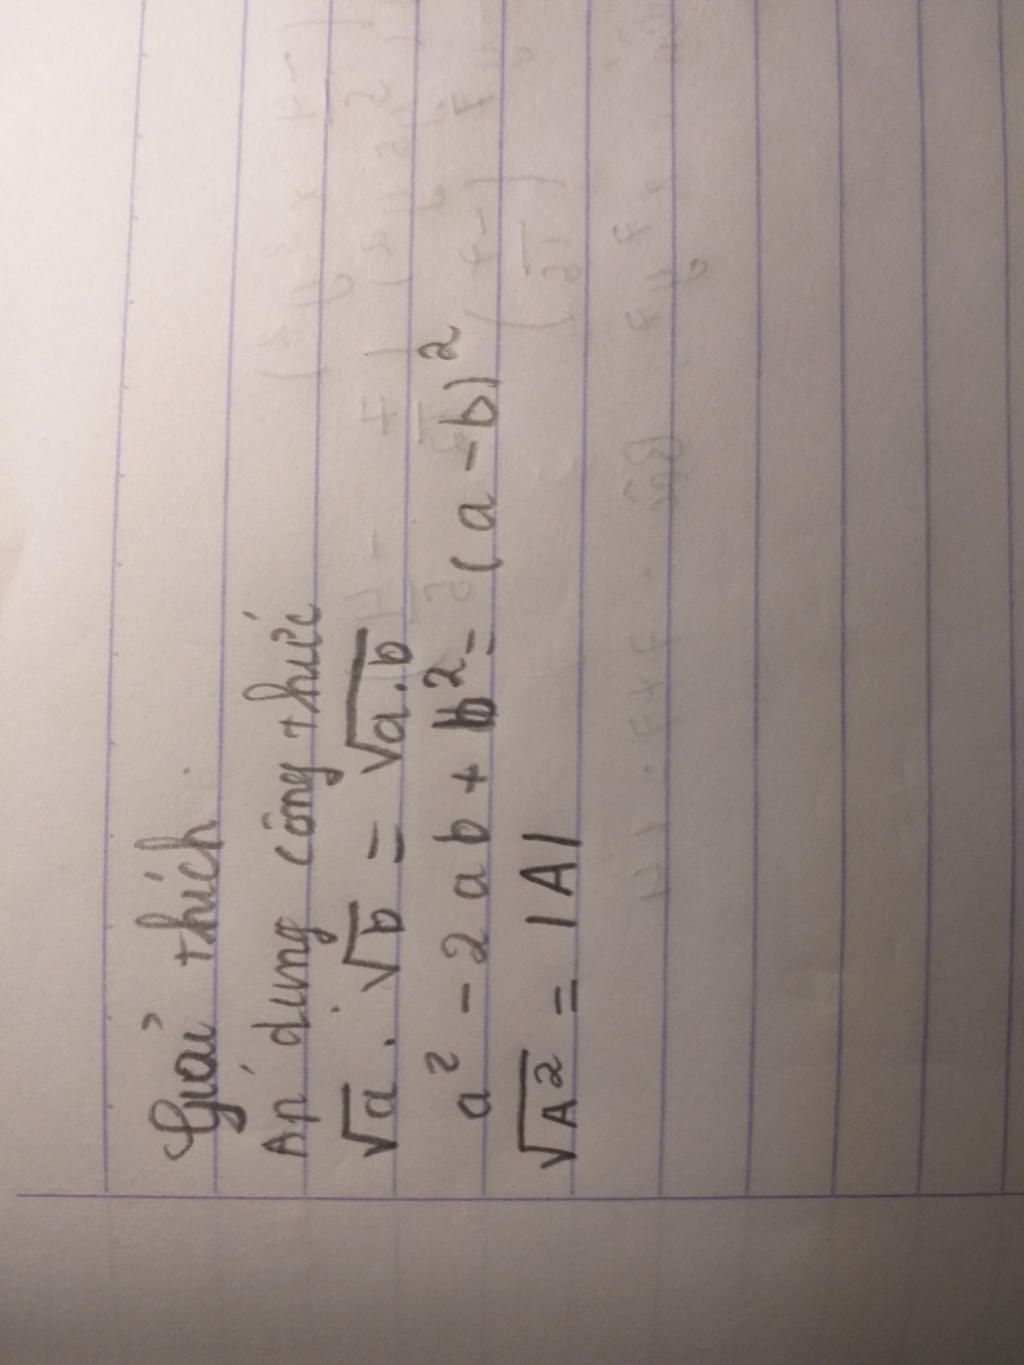 Giải thích
Áp dụng công thức
√a . √b = √a.b
a² - 2ab + b² = (a - b)²
√A² = |A|